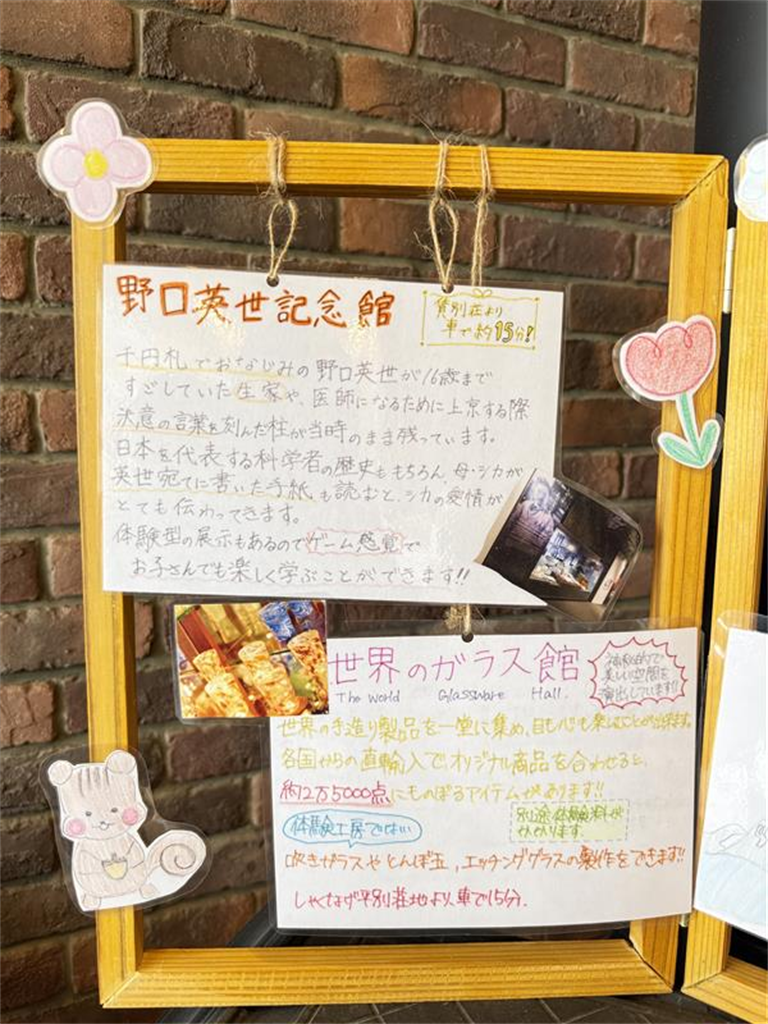 野口英世記念館
貸別荘より
車で約15分!
千円札でおなじみの野口英世が16歳まで
すごしていた生家や、医師になるために上京する際
決意の言葉を刻んだ柱が当時のまま残っています。
日本を代表する科学者の歴史ももちろん、母・シカが
英世宛てに書いた手紙も読むと、シカの愛情が
とても伝わってきます。
体験型の展示もあるのでゲーム感覚で
お子さんでも楽しく学ぶことができます!!
世界のガラス館
The World Glassware Hall.
神秘的で
美しい空間を
演出しています!!
世界の手造り製品を一堂に集め、目も心も楽しむことが出来ます。
各国からの直輸入で、オリジナル商品を合わせると、
約2万5000点にものぼるアイテムがあります!!
体験工房では…
別途体験料が
かかります
吹きガラスやとんぼ玉、エッチンググラスの製作をできます!!
しゃくなげ平別荘地より、車で15分.